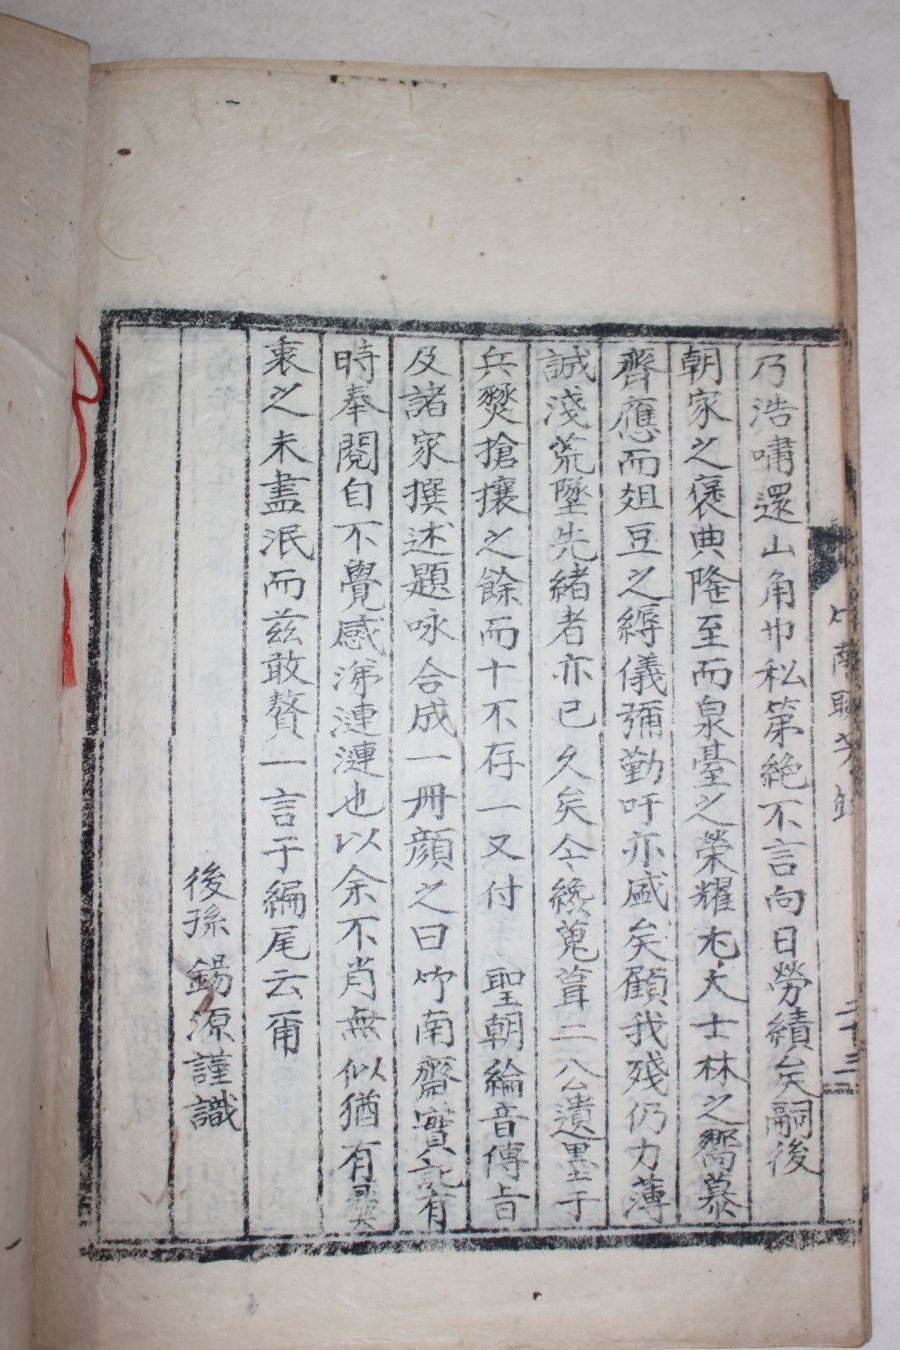 乃浩嘯還山角巾私第絶不言向日勞績矣嗣後
朝家之褒典隆至而泉臺之榮耀尤大士林之嚮慕
齊應而俎豆之縟儀彌勤吁亦盛矣顧我殘仍力薄
誠淺荒墜先緖者亦已久矣今纔蒐葺二公遺墨于
兵燹搶攘之餘而十不存一又付 聖朝綸音傳旨
及諸家撰述題咏合成一冊顔之曰竹南齋實記有
時奉閱自不覺感涕漣漣也以余不肖無似猶有彛
衷之未盡泯而玆敢贅一言于編尾云爾
後孫 錫源謹識
二十三